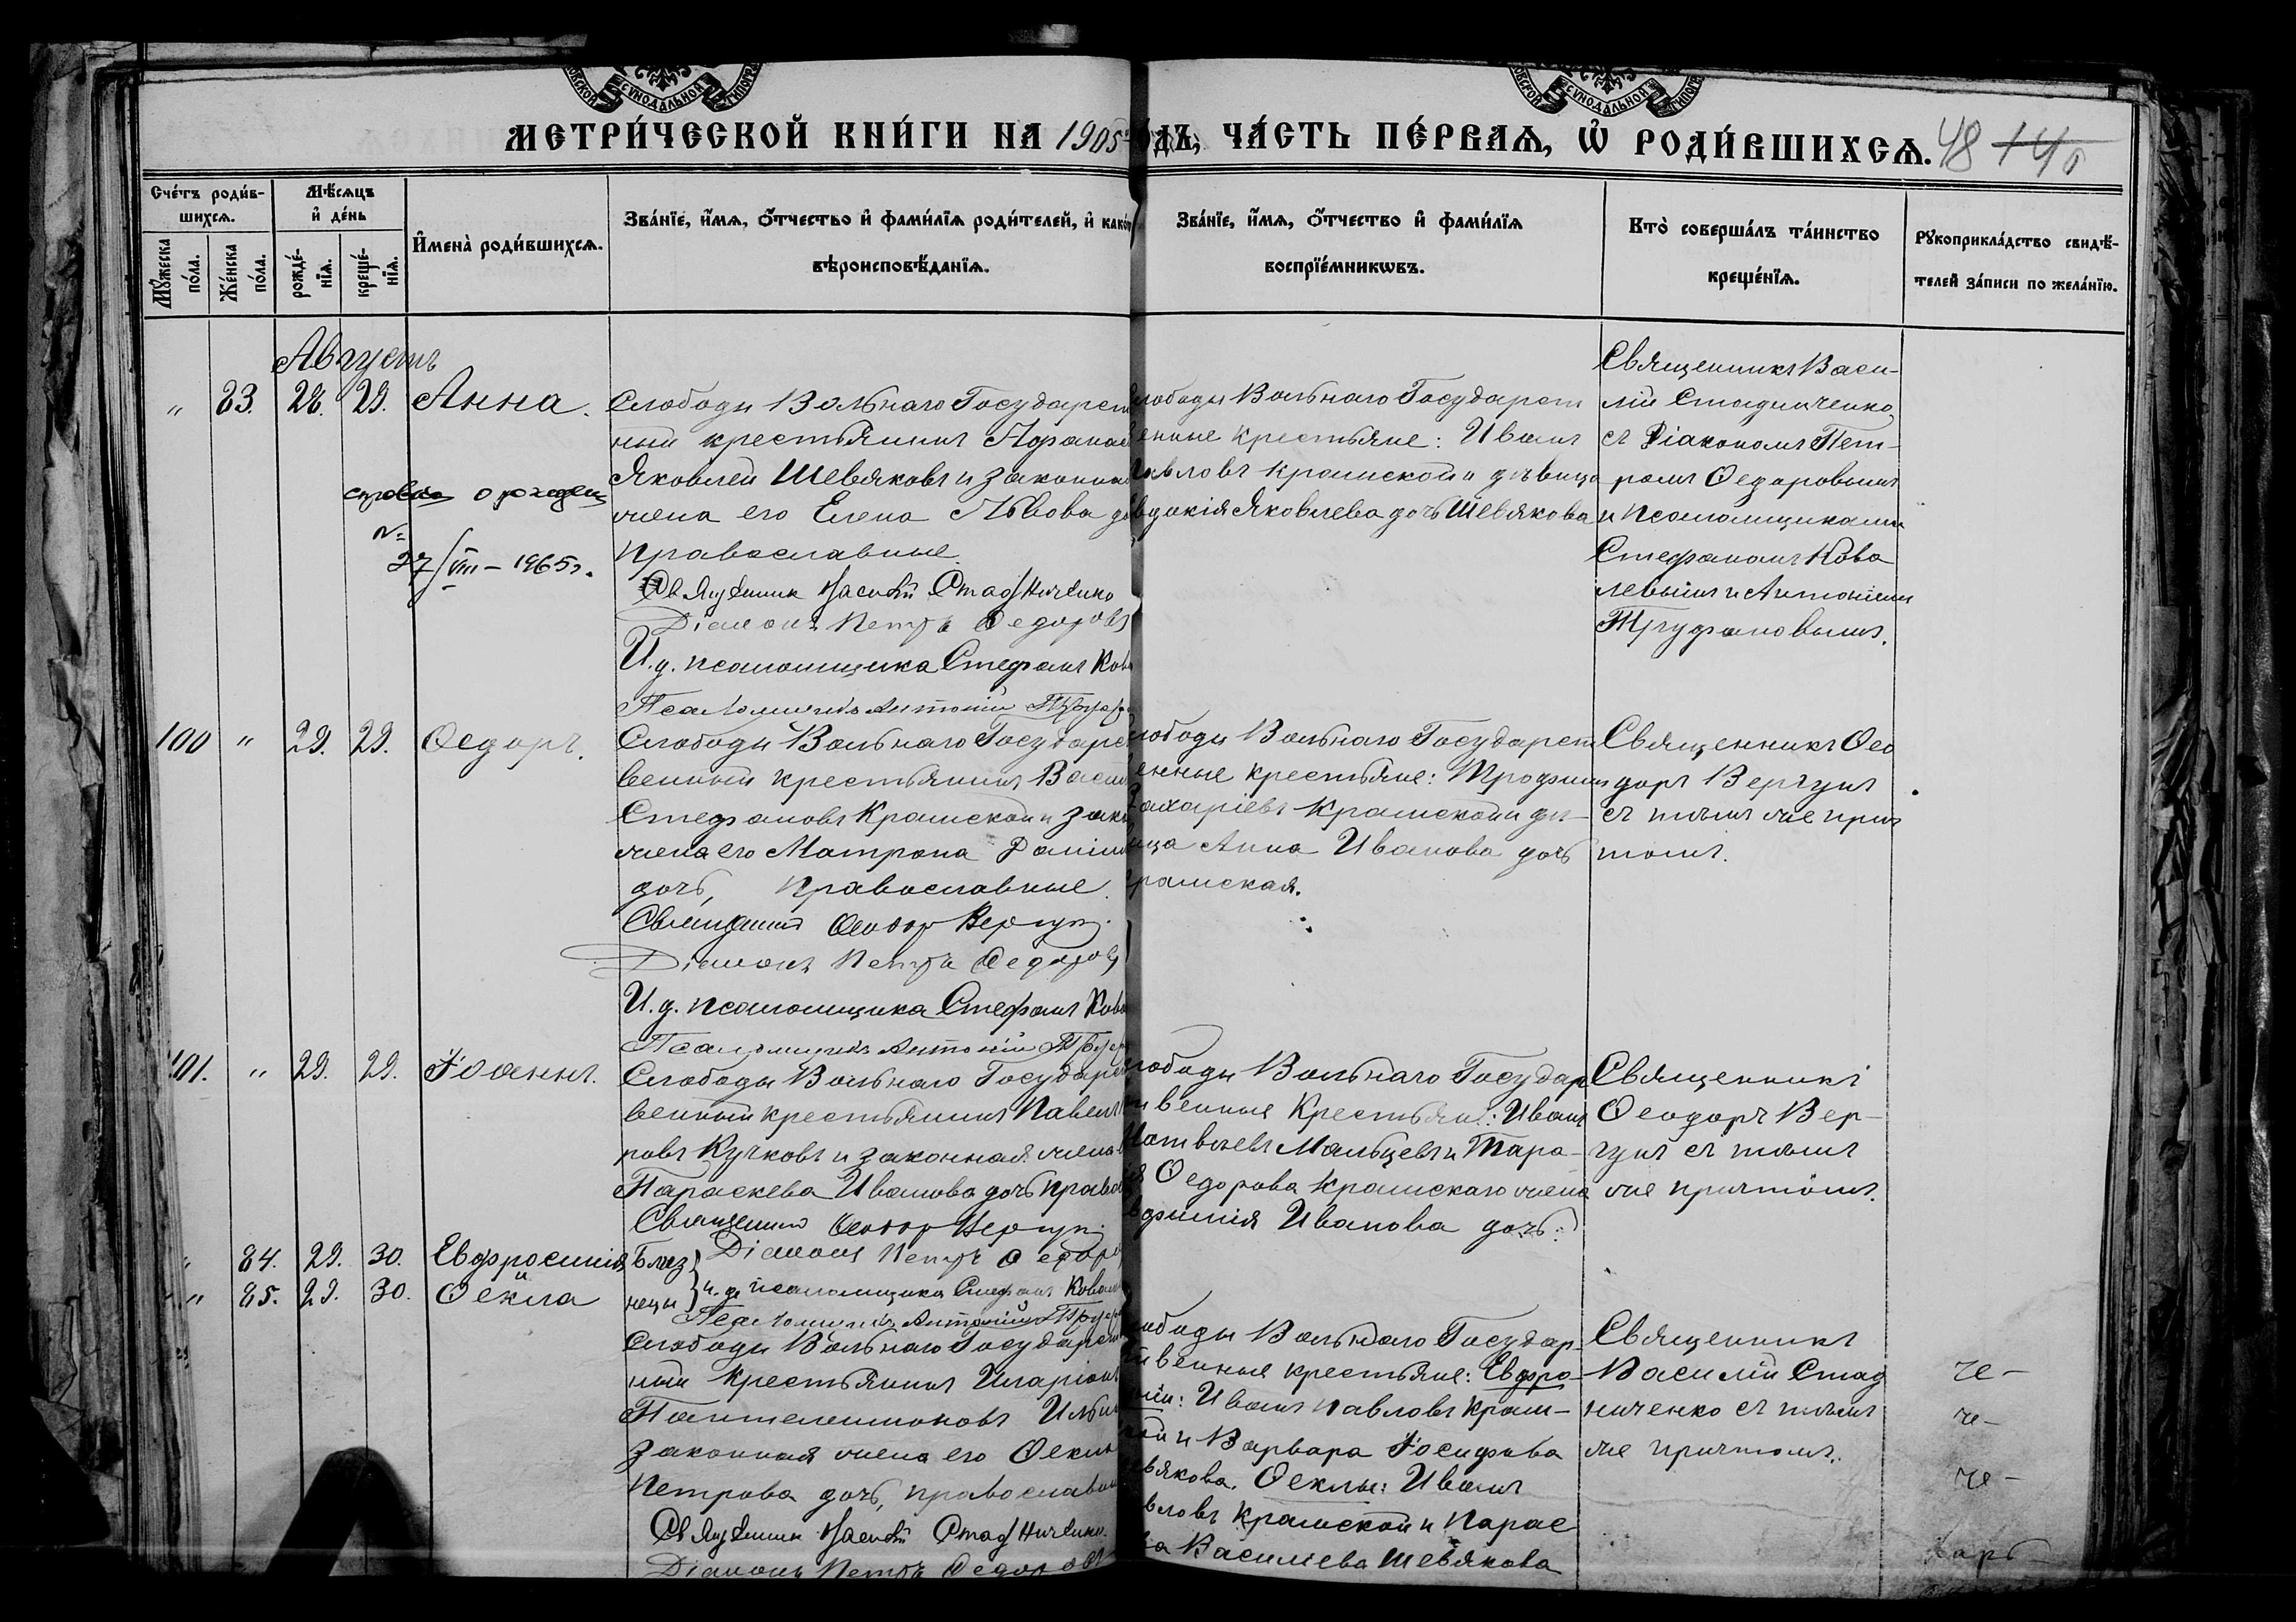 МЕТРИ́ЧЕСКОЙ КНИ́ГИ НА 1905 ГОДЪ, ЧА́СТЬ ПЕ́РВАѦ, Ѡ РОДИ́ВШИХСѦ. 48
Сче́тъ роди́в-
шихсѧ.
Мꙋжеска по́ла.
Же́нска по́ла.
Мѣ́сѧцъ
и де́нь
рожде́-
нїѧ.
креще́-
нїѧ.
Имена̀ роди́вшихсѧ.
Зва́нїе, и́мѧ, о́тчество и фами́лїѧ роди́телей, и како́
вѣроисповѣ́данїѧ.
Зва́нїе, и́мѧ, о́тчество и фами́лїѧ
воспрїе́мникѡвъ.
Кто̀ соверша́лъ та́инство
креще́нїѧ.
Рꙋкоприкла́дство свидѣ́-
телей за́писи по жела́нїю.
Августъ
" 83. 28. 29. Анна.
Слободы Вольнаго Государст
ный крестьянинъ Афанас
Яковлев Шевяковъ и законная
жена его Елена Львова до
православные.
Священник Василий Стадниченко
Діаконъ Петръ Ѳедоровъ
И. д. псаломщика Стефанъ Кова
Псаломщикъ Антоній Труф
№
27/VIII – 1965г.
слободы Вольнаго Государст
венные крестьяне: Иванъ
Павловъ Крамской и дѣвица
Евдокія Яковлева дочь Шевякова
Священникъ Васи-
лій Стадниченко
съ Діакономъ Пет-
ромъ Ѳедоровымъ
и псаломщиками
Стефаномъ Кова
левымъ и Антоніемъ
Труфановымъ.
100 " 29. 29. Ѳедоръ.
Слободы Вольнаго Государст
венный крестьянинъ Васил
Стефановъ Крамской и зако
жена его Матрона Даніил
дочь, православные.
Священникъ Ѳеодор Вергун.
Діаконъ Петръ Ѳедоровъ
И. д. псаломщика Стефанъ Кова
Псаломщикъ Антоній Труф
слободы Вольнаго Государст
венные крестьяне: Трофимъ
Захаріевъ Крамской и дѣ-
вица Анна Иванова дочь
Крамская.
Священникъ Ѳео
доръ Вергунъ
съ тѣмъ же прич
томъ.
101. " 29. 29. Іоаннъ.
Слободы Вольнаго Государст
венный крестьянинъ Павелъ
ровъ Кучковъ и законная жена
Параскева Иванова дочь право
Священникъ Ѳеодор Вергун.
Діаконъ Петръ Ѳедоровъ
И. д. псаломщика Стефанъ Ковал
Псаломщикъ Антоній Труф
слободы Вольнаго Государ
ственные Крестьяне: Иванъ
Матвѣевъ Мальцевъ и Тара-
сія Ѳедорова Крамскаго жена
Евфимія Иванова дочь.
Священникъ
Ѳеодоръ Вер-
гунъ съ тѣмъ
же причтомъ.
" 84. 29. 30. Евфросинія
" 85. 29. 30. Ѳекла
Близ
нецы
Слободы Вольнаго Государствен
ный Крестьянинъ Иларіонъ
Пантелеимоновъ Ильи
законная жена его Ѳекла
Петрова дочь, православн
Священник Василий Стадниченко.
Діаконъ Петръ Ѳедоровъ
слободы Вольнаго Государ-
ственные крестьяне: Евфро-
синіи: Иванъ Павловъ Крам-
ской и Варвара Іосифова
Шевякова. Ѳеклы: Иванъ
Павловъ Крамской и Парас
кева Василіева Шевякова
Священникъ
Василій Стад
ниченко съ тѣмъ
же причтомъ.